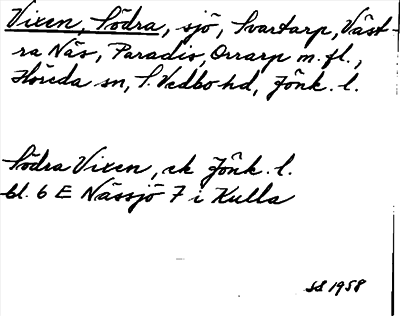 Vixen, Södra, sjö, Svartarp, Väst-
ra Näs, Paradis, Orrarp m. fl.,
Höreda sn, S. Vedbo hd, Jönk. l.
Södra Vixen, ek Jönk. l.
bl. 6 E Nässjö 7 i Kulla
SS 1958